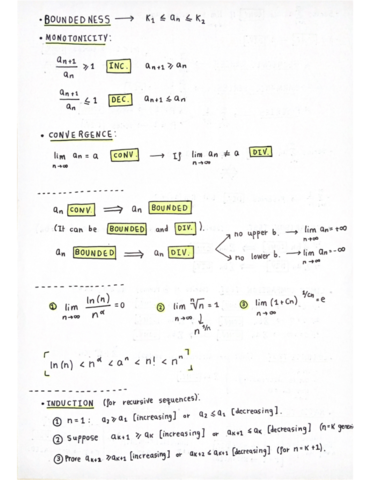 • BOUNDEDNESS → K₁ ≤ aₙ ≤ K₂
• MONOTONICITY:
aₙ₊₁/aₙ ≥ 1 INC. aₙ₊₁ ≥ aₙ
aₙ₊₁/aₙ ≤ 1 DEC. aₙ₊₁ ≤ aₙ
• CONVERGENCE:
lim n→∞ aₙ = a CONV. → If lim n→∞ aₙ ≠ a DIV.
aₙ CONV. ⟹ aₙ BOUNDED
(It can be BOUNDED and DIV.).
no upper b. → lim n→∞ aₙ = +∞
aₙ BOUNDED ⟹ aₙ DIV.
no lower b. → lim n→∞ aₙ = -∞
① lim n→∞ ln(n)/n^α = 0 ② lim n→∞ ⁿ√n = 1 ③ lim n→∞ (1+Cn)^(1/Cn) = e
↓
n^(1/n)
[ln(n) < n^α < aⁿ < n! < nⁿ]
• INDUCTION (for recursive sequences):
① n=1: a₂ ≥ a₁ [increasing] or a₂ ≤ a₁ [decreasing].
② Suppose aₖ₊₁ ≥ aₖ [increasing] or aₖ₊₁ ≤ aₖ [decreasing] (n=K
③ Prove aₖ₊₂ ≥ aₖ₊₁ [increasing] or aₖ₊₂ ≤ aₖ₊₁ [decreasing] (for n=K+1).